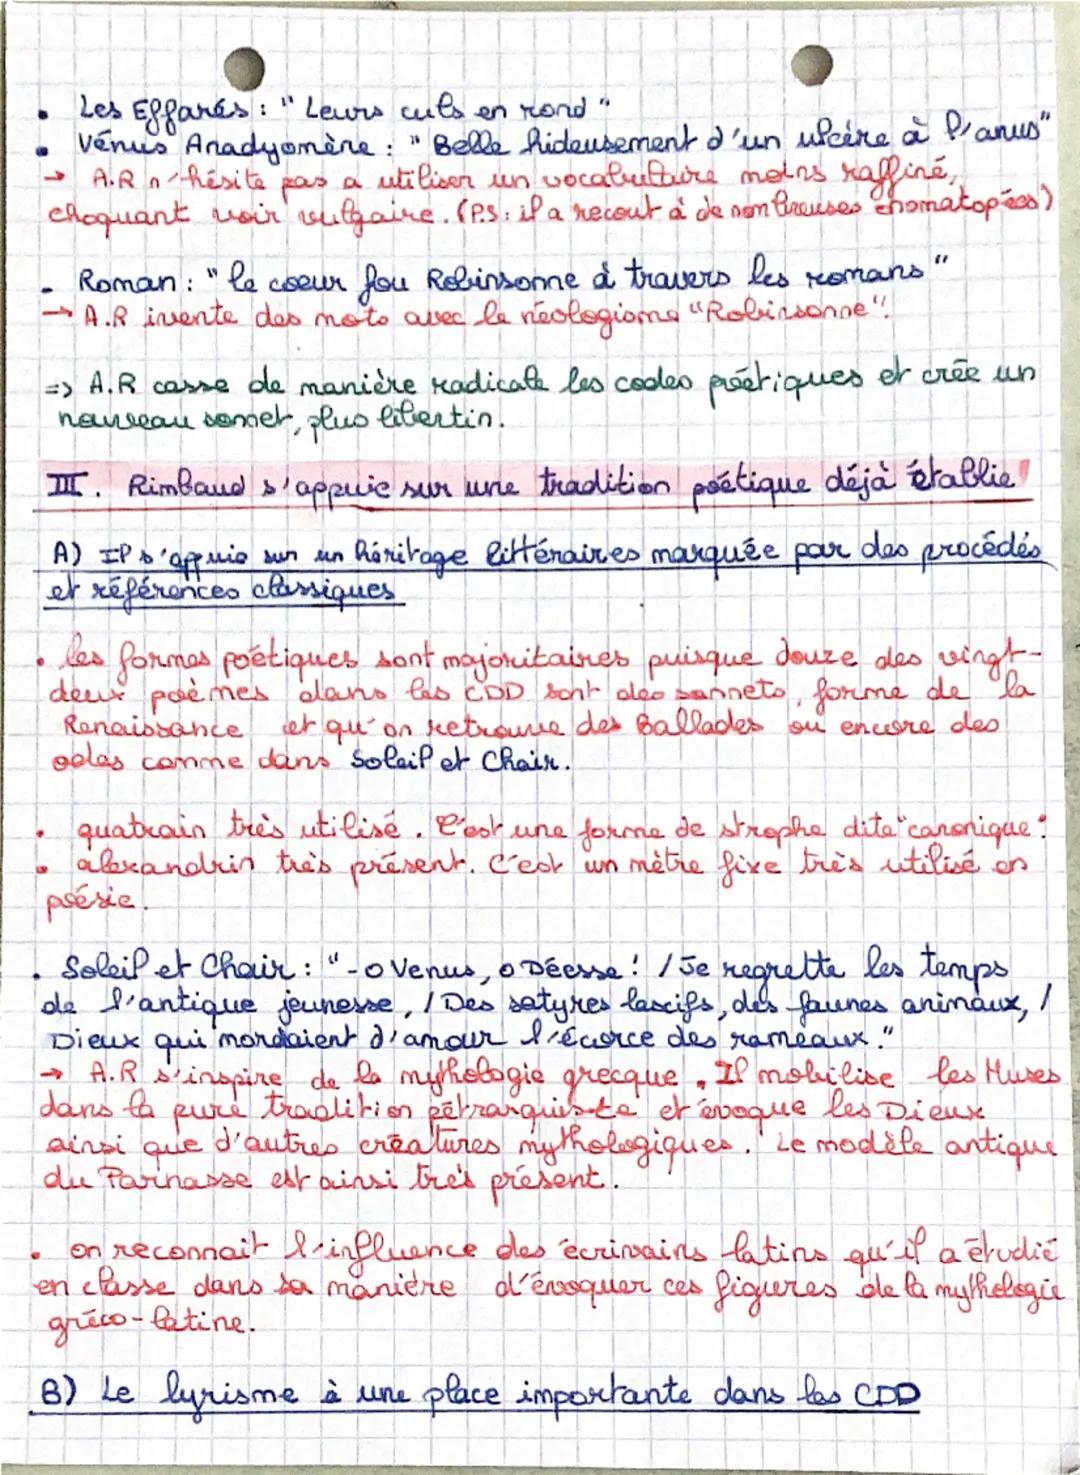 • Les Effarés : " Leurs culs en rond "
• Vénus Anadyomène : " Belle hideusement d'un ulcère à l'anus"
→ A.R n'hésite pas a utiliser un vocabultaire moins raffiné,
choquant voir vulgaire. (P.S: il a recout à de nombreuses onomatopées)
- Roman : " le coeur fou Robinsonne à travers les romans "
→ A.R ivente des mots avec le néologisme "Robinsonne".
=> A.R casse de manière radicale les codes poétiques et crée un
nouveau sonnet, plus libertin.
III. Rimbaud s'appuie sur une tradition poétique déjà établie
A) Il s'appuie sur un héritage littéraires marquée par des procédés
et références classiques
• les formes poétiques sont majoritaires puisque douze des vingt-
deux poèmes dans les CDD sont des sonnets, forme de la
Renaissance et qu'on retrouve des Ballades ou encore des
odes comme dans Soleil et Chair.
• quatrain très utilisé. C'est une forme de strophe dite "canonique".
• alexandrin très présent. C'est un mètre fixe très utilisé en
poésie.
• Soleil et Chair : " - O Venus, o Déesse ! / Je regrette les temps
de l'antique jeunesse, / Des satyres lascifs, des faunes animaux, /
Dieux qui mordaient d'amour l'écorce des rameaux."
→ A.R s'inspire de la mythologie grecque. Il mobilise les Muses
dans la pure tradition pétrarquiste et évoque les Dieux
ainsi que d'autres créatures mythologiques. Le modèle antique
du Parnasse est ainsi très présent.
• on reconnait l'influence des écrivains latins qu'il a étudié
en classe dans sa manière d'évoquer ces figures de la mythologie
gréco-latine.
B) Le lyrisme à une place importante dans les CDD